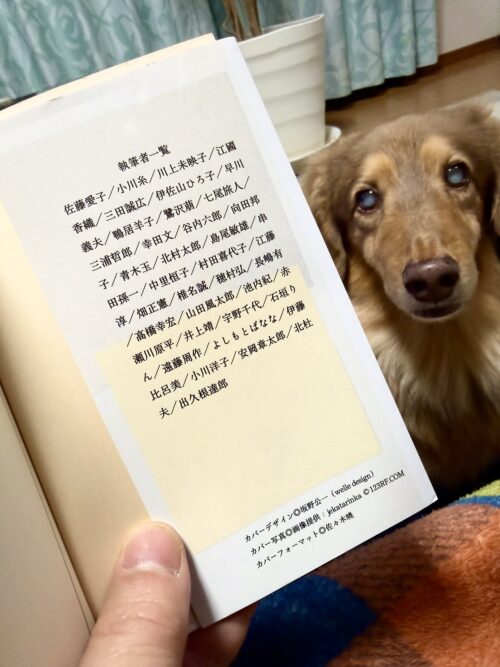 執筆者一覧
佐藤愛子／小川糸／川上未映子／江國
香織／三田誠広／伊佐山ひろ子／早川
義夫／鴨居羊子／鷺沢萠／七尾旅人／
三浦哲郎／幸田文／谷内六郎／向田邦
子／青木玉／北村太郎／島尾敏雄／串
田孫一／中里恒子／村田喜代子／江藤
淳／畑正憲／椎名誠／穂村弘／長嶋有
／高橋幸宏／山田風太郎／池内紀／赤
瀬川原平／井上靖／宇野千代／石垣り
ん／遠藤周作／よしもとばなな／伊藤
比呂美／小川洋子／安岡章太郎／北杜
夫／出久根達郎
カバーデザイン◎坂野公一（welle design）
カバー写真◎画像提供：jekatarinka © 123RF.COM
カバーフォーマット◎佐々木暁